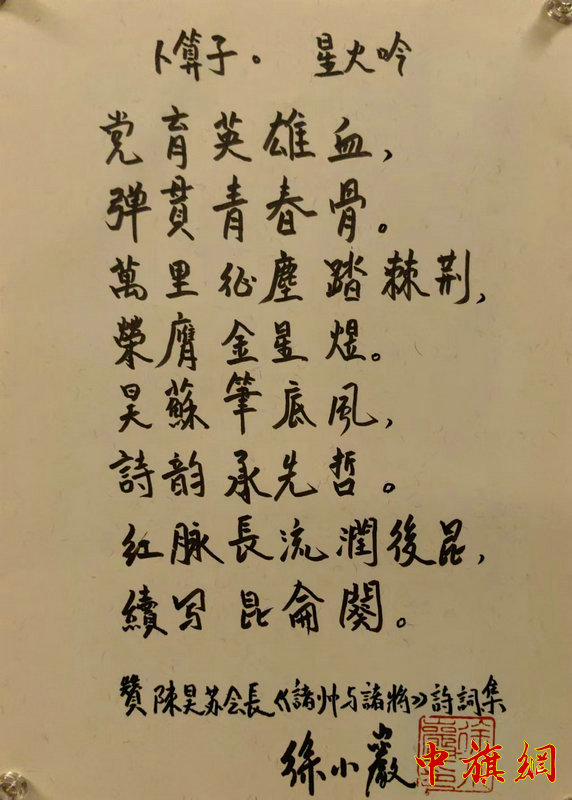 卜算子。 星火吟
党育英雄血，
弹贯青春骨。
萬里征塵踏棘荆，
榮膺金星煜。
昊蘇筆底風，
詩韵承先哲。
红脉長流潤後昆，
續写昆侖闋。
贊陳昊苏会長《諸帅与諸將》詩詞集
徐小巖
中旗網